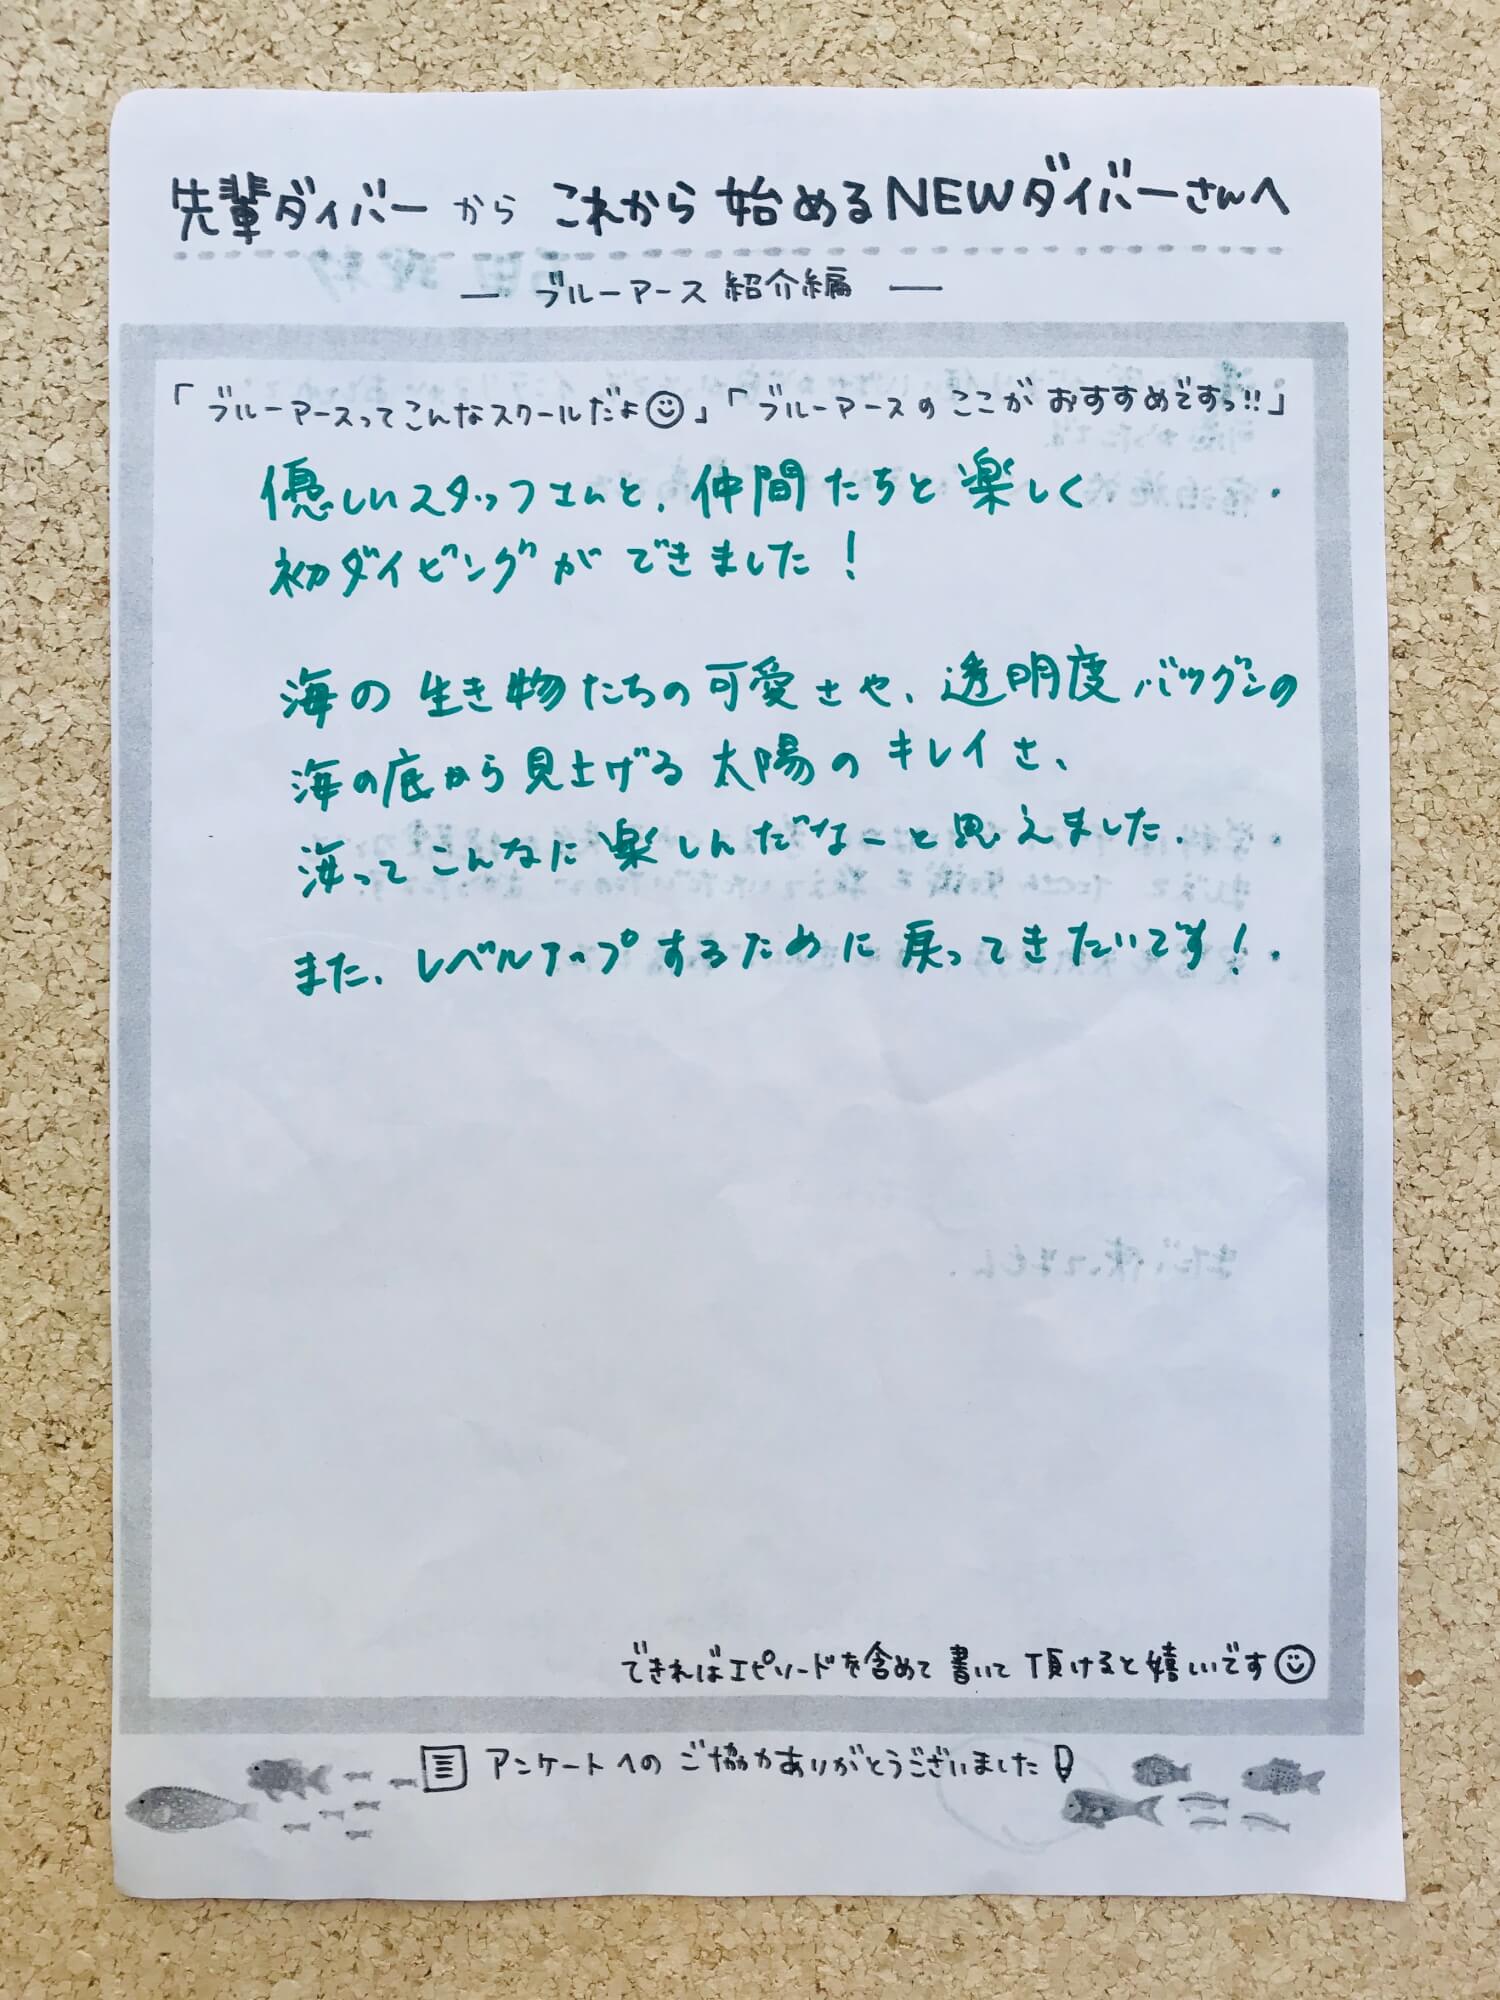 先輩ダイバーから これから始めるNEWダイバーさんへ
― ブルーアース紹介編 ―
「ブルーアースってこんなスクールだよ☺」「ブルーアースのここがおすすめですっ!!」
優しいスタッフさんと、仲間たちと楽しく
初ダイビングができました!
海の生き物たちの可愛さや、透明度バツグンの
海の底から見上げる太陽のキレイさ、
海ってこんなに楽しんだなーと思えました.
また、レベルアップするために戻ってきたいです!
できればエピソードを含めて書いて頂けると嬉しいです☺
アンケートへのご協力ありがとうございました